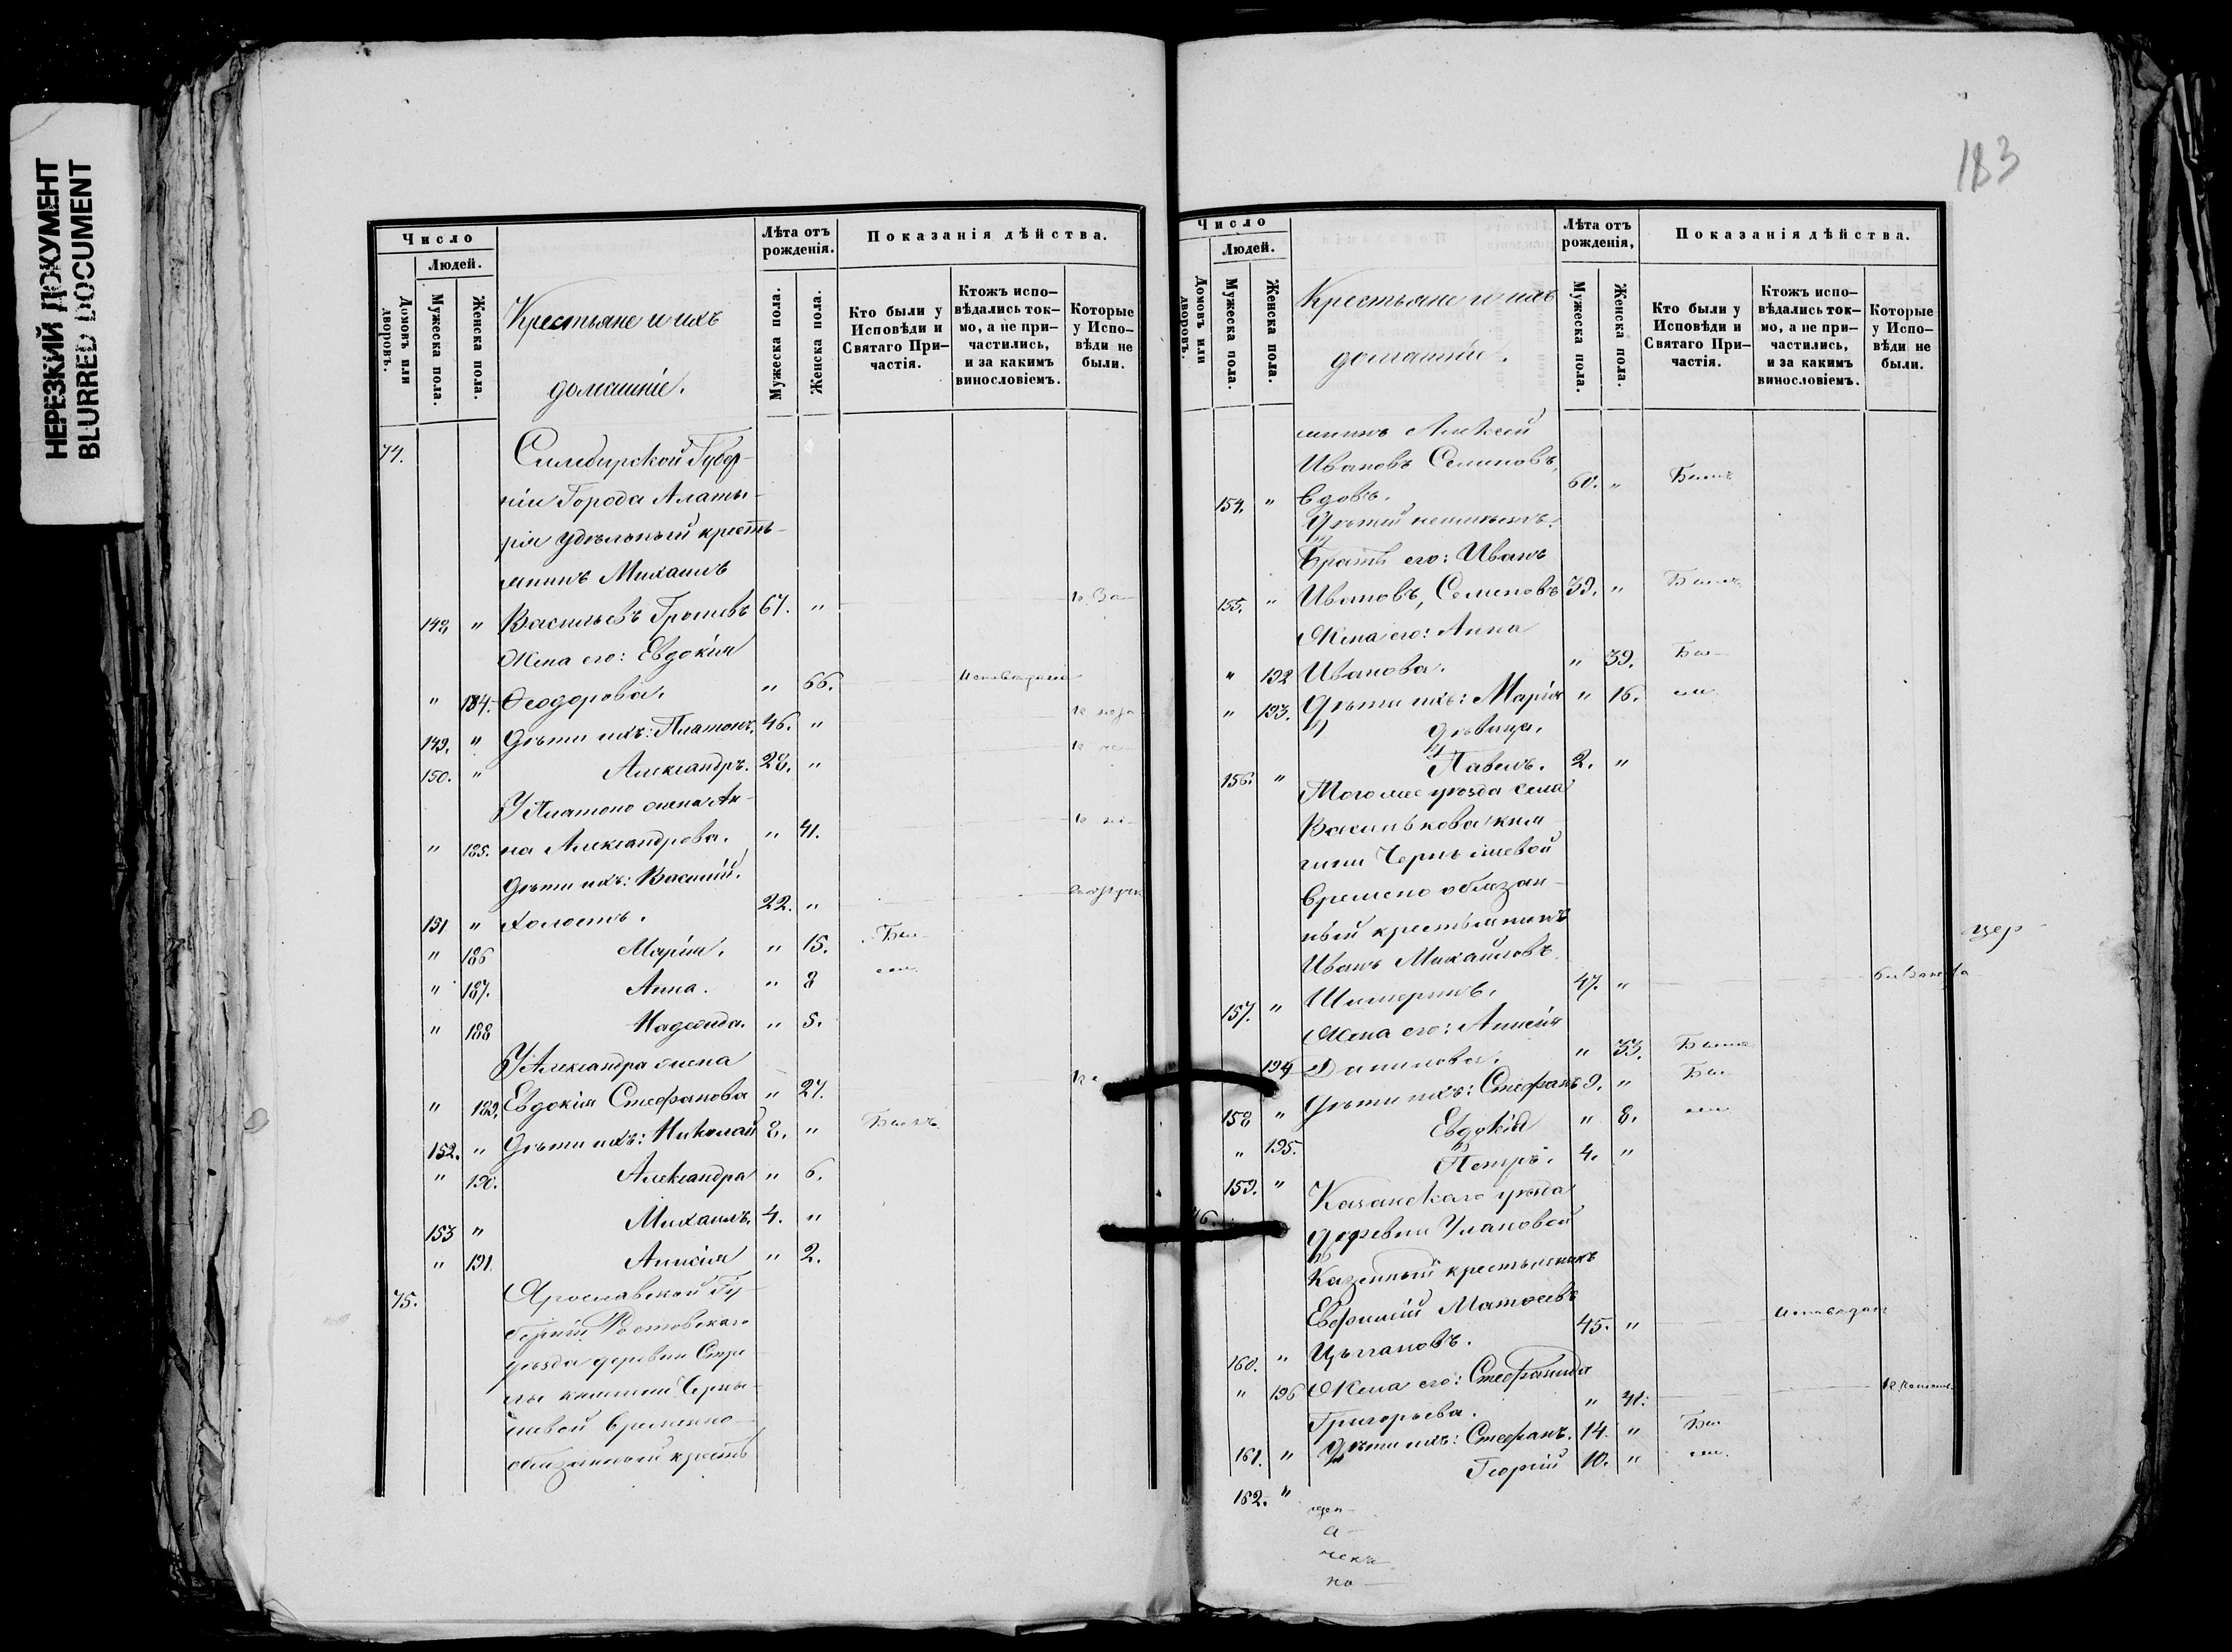 НЕРЕЗКИЙ ДОКУМЕНТ
BLURRED DOCUMENT
Число
Людей.
Домовъ или дворовъ.
Мужеска пола.
Женска пола.
Крестьяне и ихъ
домашніе.
Лѣта отъ рожденія.
Мужеска пола.
Женска пола.
Показанія дѣйства.
Кто были у Исповѣди и Святаго При-частія.
Ктожъ испо-вѣдались ток-мо, а не при-частились, и за какимъ винословіемъ.
Которые у Испо-вѣди не были.
74. Симбирской Губер-
ніи Города Алаты-
ря удѣльный кресть-
янинъ Михаилъ
148 " Васильевъ 67. "
Жена его: Евдокія
" 184. Ѳеодорова. " 66.
149. " Дѣти ихъ: Платонъ. 46. "
150. " Александръ. 28. "
У Платона жена Ан-
" 185. на Александрова. " 41.
Дѣти ихъ: Василій.
151 " Холостъ. 22. "
" 186 Марія. " 15. Бы-
" 187. Анна. " 8 ли.
" 188 Надежда. " 5.
У Александра жена
" 189. Евдокія Стефанова " 27.
152. " Дѣти ихъ: Николай 8. " Былъ
" 190. Александра " 6.
153 " Михаилъ. 4. "
" 191. Анисія " 2.
75. Ярославской Гу-
берніи Ростовскаго
уѣзда деревни Стре-
лы княгини Черны-
шевой временно-
обязанный кресть
183
Число
Людей.
Домовъ или дворовъ.
Мужеска пола.
Женска пола.
Крестьяне и ихъ
домашніе.
Лѣта отъ рожденія,
Мужеска пола.
Женска пола.
Показанія дѣйства.
Кто были у Исповѣди и Святаго При-частія.
Ктожъ испо-вѣдались ток-мо, а не при-частились, и за какимъ винословіемъ.
Которые у Испо-вѣди не были.
янинъ Алексей
Ивановъ Семеновъ,
154. " вдовъ. 60. " Былъ
Дѣтей неимѣетъ.
Братъ его: Иванъ
155. " Ивановъ, Семеновъ 39. " Былъ
Жена его: Анна
" 192 Иванова. " 39. Бы-
" 193. Дѣти ихъ: Марія " 16. ли
дѣвица.
156. " Павелъ. 2. "
Тогоже уѣзда села
Василькова кня-
гини Чернышевой
временно обязан-
ный крестьянинъ
Иванъ Михайловъ
157. " 47. "
Жена его: Анисія
194 Данилова. " 33. Была
158 " Дѣти ихъ: Стефанъ 9. " Бы-
" 195. Евдокія " 8. ли
159. " Петръ. 4. "
76. Казанскаго уѣзда
деревни Улановой
Казенный крестьянинъ
Евфимій Матѳеевъ
160. " Цыгановъ. 45. "
" 196 Жена его: Стефанида
Григорьева. " 41.
161. " Дѣти ихъ: Стефанъ. 14. " Бы-
162. " Георгій 10. " ли.